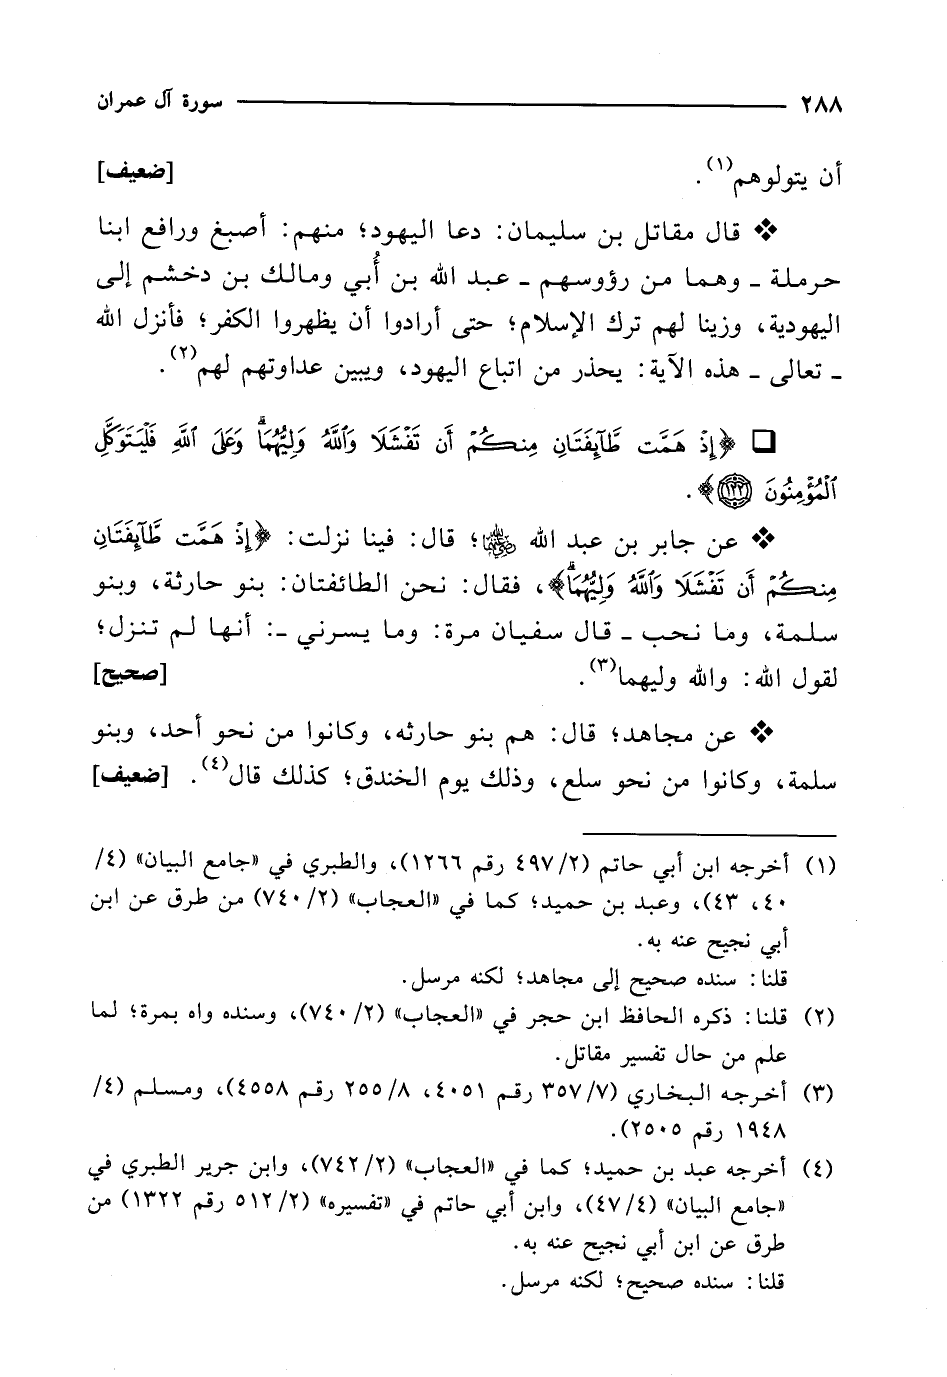 ٢٨٨ سورة آل عمران
أن يتولوهم(١). [ضعيف]
❖ قال مقاتل بن سليمان: دعا اليهود؛ منهم: أصبغ ورافع ابنا
حرملة ـ وهما من رؤوسهم ـ عبد الله بن أُبي ومالك بن دخشم إلى
اليهودية، وزينا لهم ترك الإسلام؛ حتى أرادوا أن يظهروا الكفر؛ فأنزل الله
ـ تعالى ـ هذه الآية: يحذر من اتباع اليهود، ويبين عداوتهم لهم(٢).
❑ ﴿إِذْ هَمَّت طَّآئِفَتَانِ مِنكُمْ أَن تَفْشَلَا وَٱللَّهُ وَلِيُّهُمَاۗ وَعَلَى ٱللَّهِ فَلْيَتَوَكَّلِ
ٱلْمُؤْمِنُونَ ١٢٢﴾.
❖ عن جابر بن عبد الله رضي الله عنه؛ قال: فينا نزلت: ﴿إِذْ هَمَّت طَّآئِفَتَانِ
مِنكُمْ أَن تَفْشَلَا وَٱللَّهُ وَلِيُّهُمَاۗ﴾، فقال: نحن الطائفتان: بنو حارثة، وبنو
سلمة، وما نحب ـ قال سفيان مرة: وما يسرني ـ: أنها لم تنزل؛
لقول الله: والله وليهما(٣). [صحيح]
❖ عن مجاهد؛ قال: هم بنو حارثه، وكانوا من نحو أحد، وبنو
سلمة، وكانوا من نحو سلع، وذلك يوم الخندق؛ كذلك قال(٤). [ضعيف]
(١) أخرجه ابن أبي حاتم (٢/ ٤٩٧ رقم ١٢٦٦)، والطبري في «جامع البيان» (٤/
٤٠، ٤٣)، وعبد بن حميد؛ كما في «العجاب» (٢/ ٧٤٠) من طرق عن ابن
أبي نجيح عنه به.
قلنا: سنده صحيح إلى مجاهد؛ لكنه مرسل.
(٢) قلنا: ذكره الحافظ ابن حجر في «العجاب» (٢/ ٧٤٠)، وسنده واه بمرة؛ لما
علم من حال تفسير مقاتل.
(٣) أخرجه البخاري (٧/ ٣٥٧ رقم ٤٠٥١، ٨/ ٢٥٥ رقم ٤٥٥٨)، ومسلم (٤/
١٩٤٨ رقم ٢٥٠٥).
(٤) أخرجه عبد بن حميد؛ كما في «العجاب» (٢/ ٧٤٢)، وابن جرير الطبري في
«جامع البيان» (٤/ ٤٧)، وابن أبي حاتم في «تفسيره» (٢/ ٥١٢ رقم ١٣٢٢) من
طرق عن ابن أبي نجيح عنه به.
قلنا: سنده صحيح؛ لكنه مرسل.